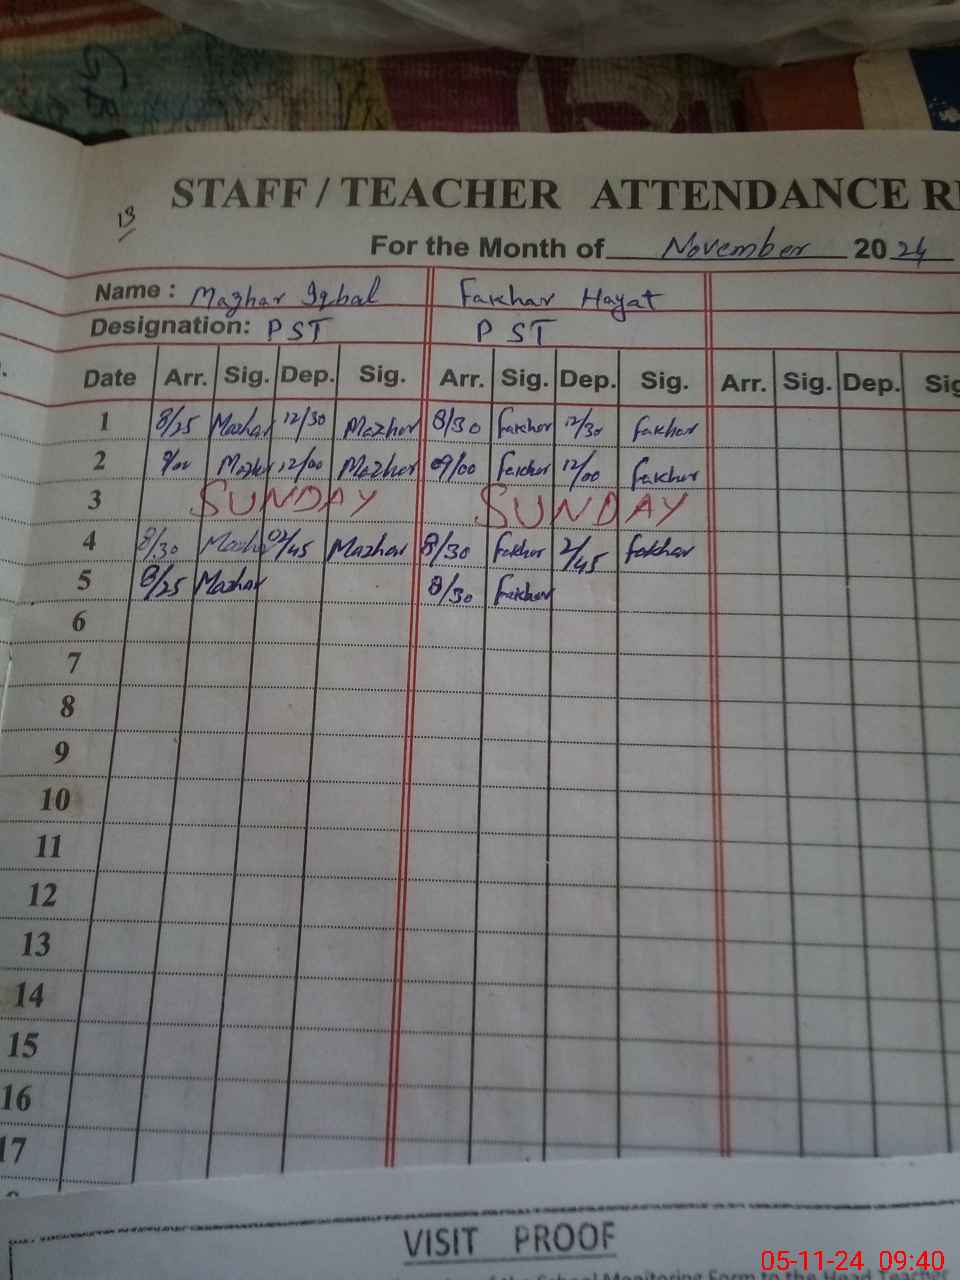 STAFF / TEACHER ATTENDANCE RE
13
For the Month of November 2024
Name : Mazhar Iqbal Fakhar Hayat
Designation: PST PST
Date Arr. Sig. Dep. Sig. Arr. Sig. Dep. Sig. Arr. Sig. Dep. Sig
1 8/25 Mazhar 12/30 Mazhar 8/30 fakhar 12/30 fakhar
2 9/00 Mazhar 12/00 Mazhar 09/00 fakhar 12/00 fakhar
3 SUNDAY SUNDAY
4 8/30 Mazhar 02/45 Mazhar 8/30 fakhar 2/45 fakhar
5 8/25 Mazhar 8/30 fakhar
6
7
8
9
10
11
12
13
14
15
16
17
VISIT PROOF
of the School Monitoring Form to the Head Teacher
05-11-24 09:40